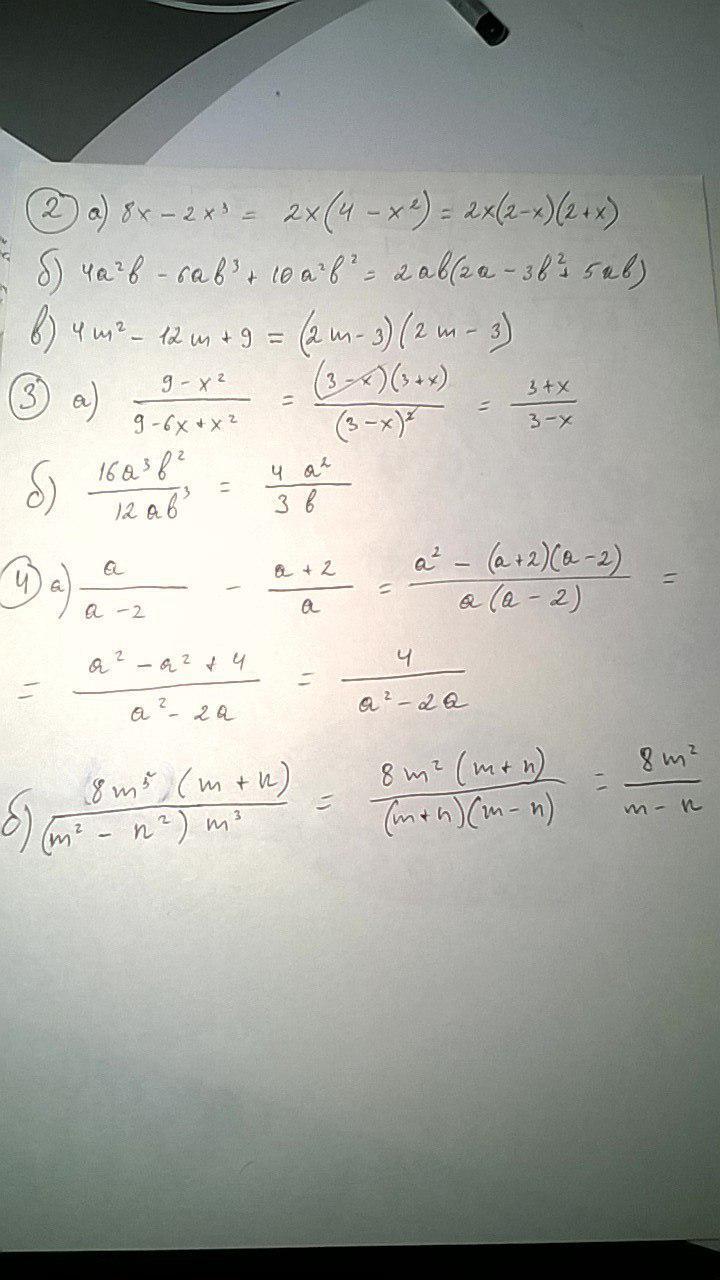 ② а) 8x - 2x³ = 2x(4 - x²) = 2x(2-x)(2+x)
б) 4a²b - 6ab³ + 10a²b² = 2ab(2a - 3b² + 5ab)
в) 4m² - 12m + 9 = (2m-3)(2m-3)
③ а) (9-x²)/(9-6x+x²) = ((3-x)(3+x))/((3-x)²) = (3+x)/(3-x)
б) (16a³b²)/(12ab³) = (4a²)/(3b)
④ а) a/(a-2) - (a+2)/a = (a² - (a+2)(a-2))/(a(a-2)) =
= (a² - a² + 4)/(a² - 2a) = 4/(a² - 2a)
б) (8m⁵(m+n))/((m² - n²)m³) = (8m²(m+n))/((m+n)(m-n)) = (8m²)/(m-n)